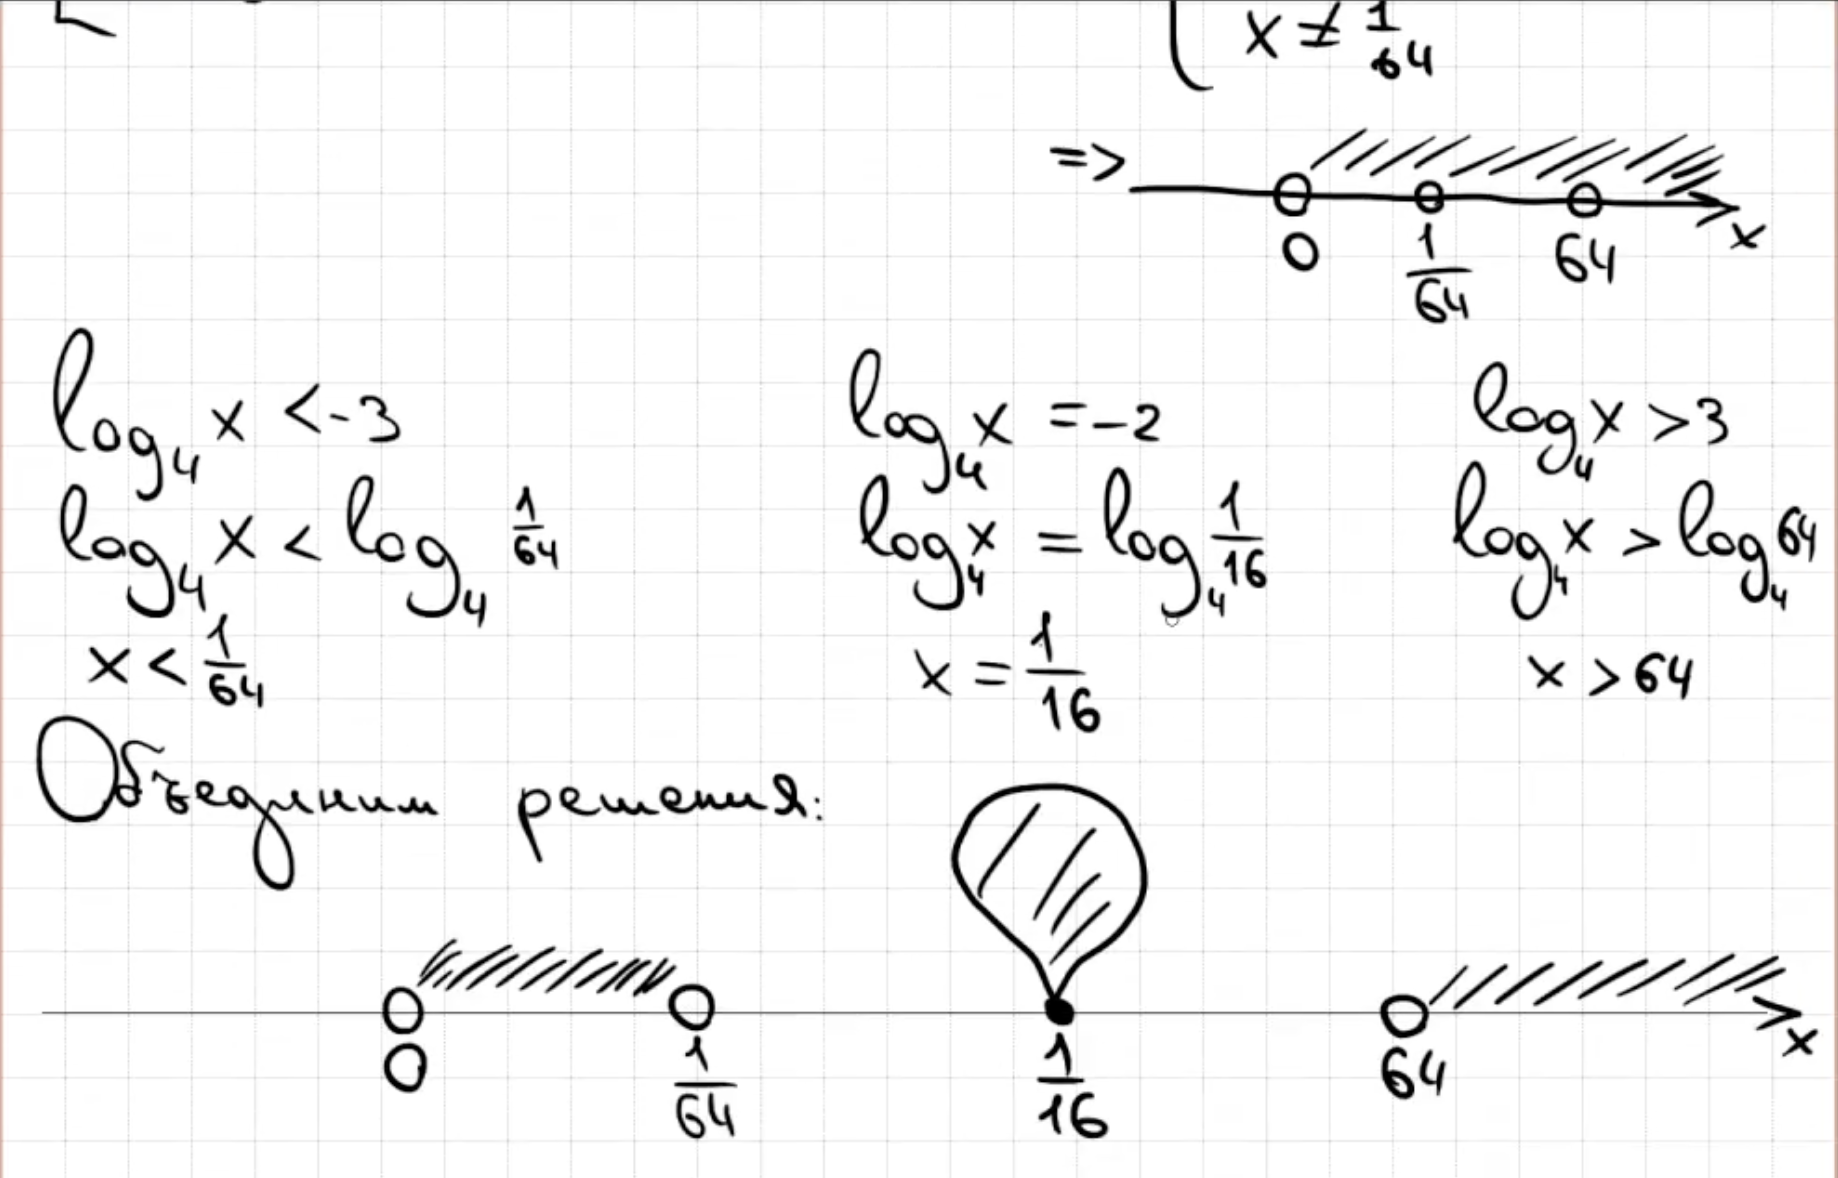 x ≠ 1/64
=>
0 1/64 64 x
log₄ x < -3
log₄ x < log₄ 1/64
x < 1/64
log₄ x = -2
log₄ x = log₄ 1/16
x = 1/16
log₄ x > 3
log₄ x > log₄ 64
x > 64
Объединим решения:
0 1/64 1/16 64 x